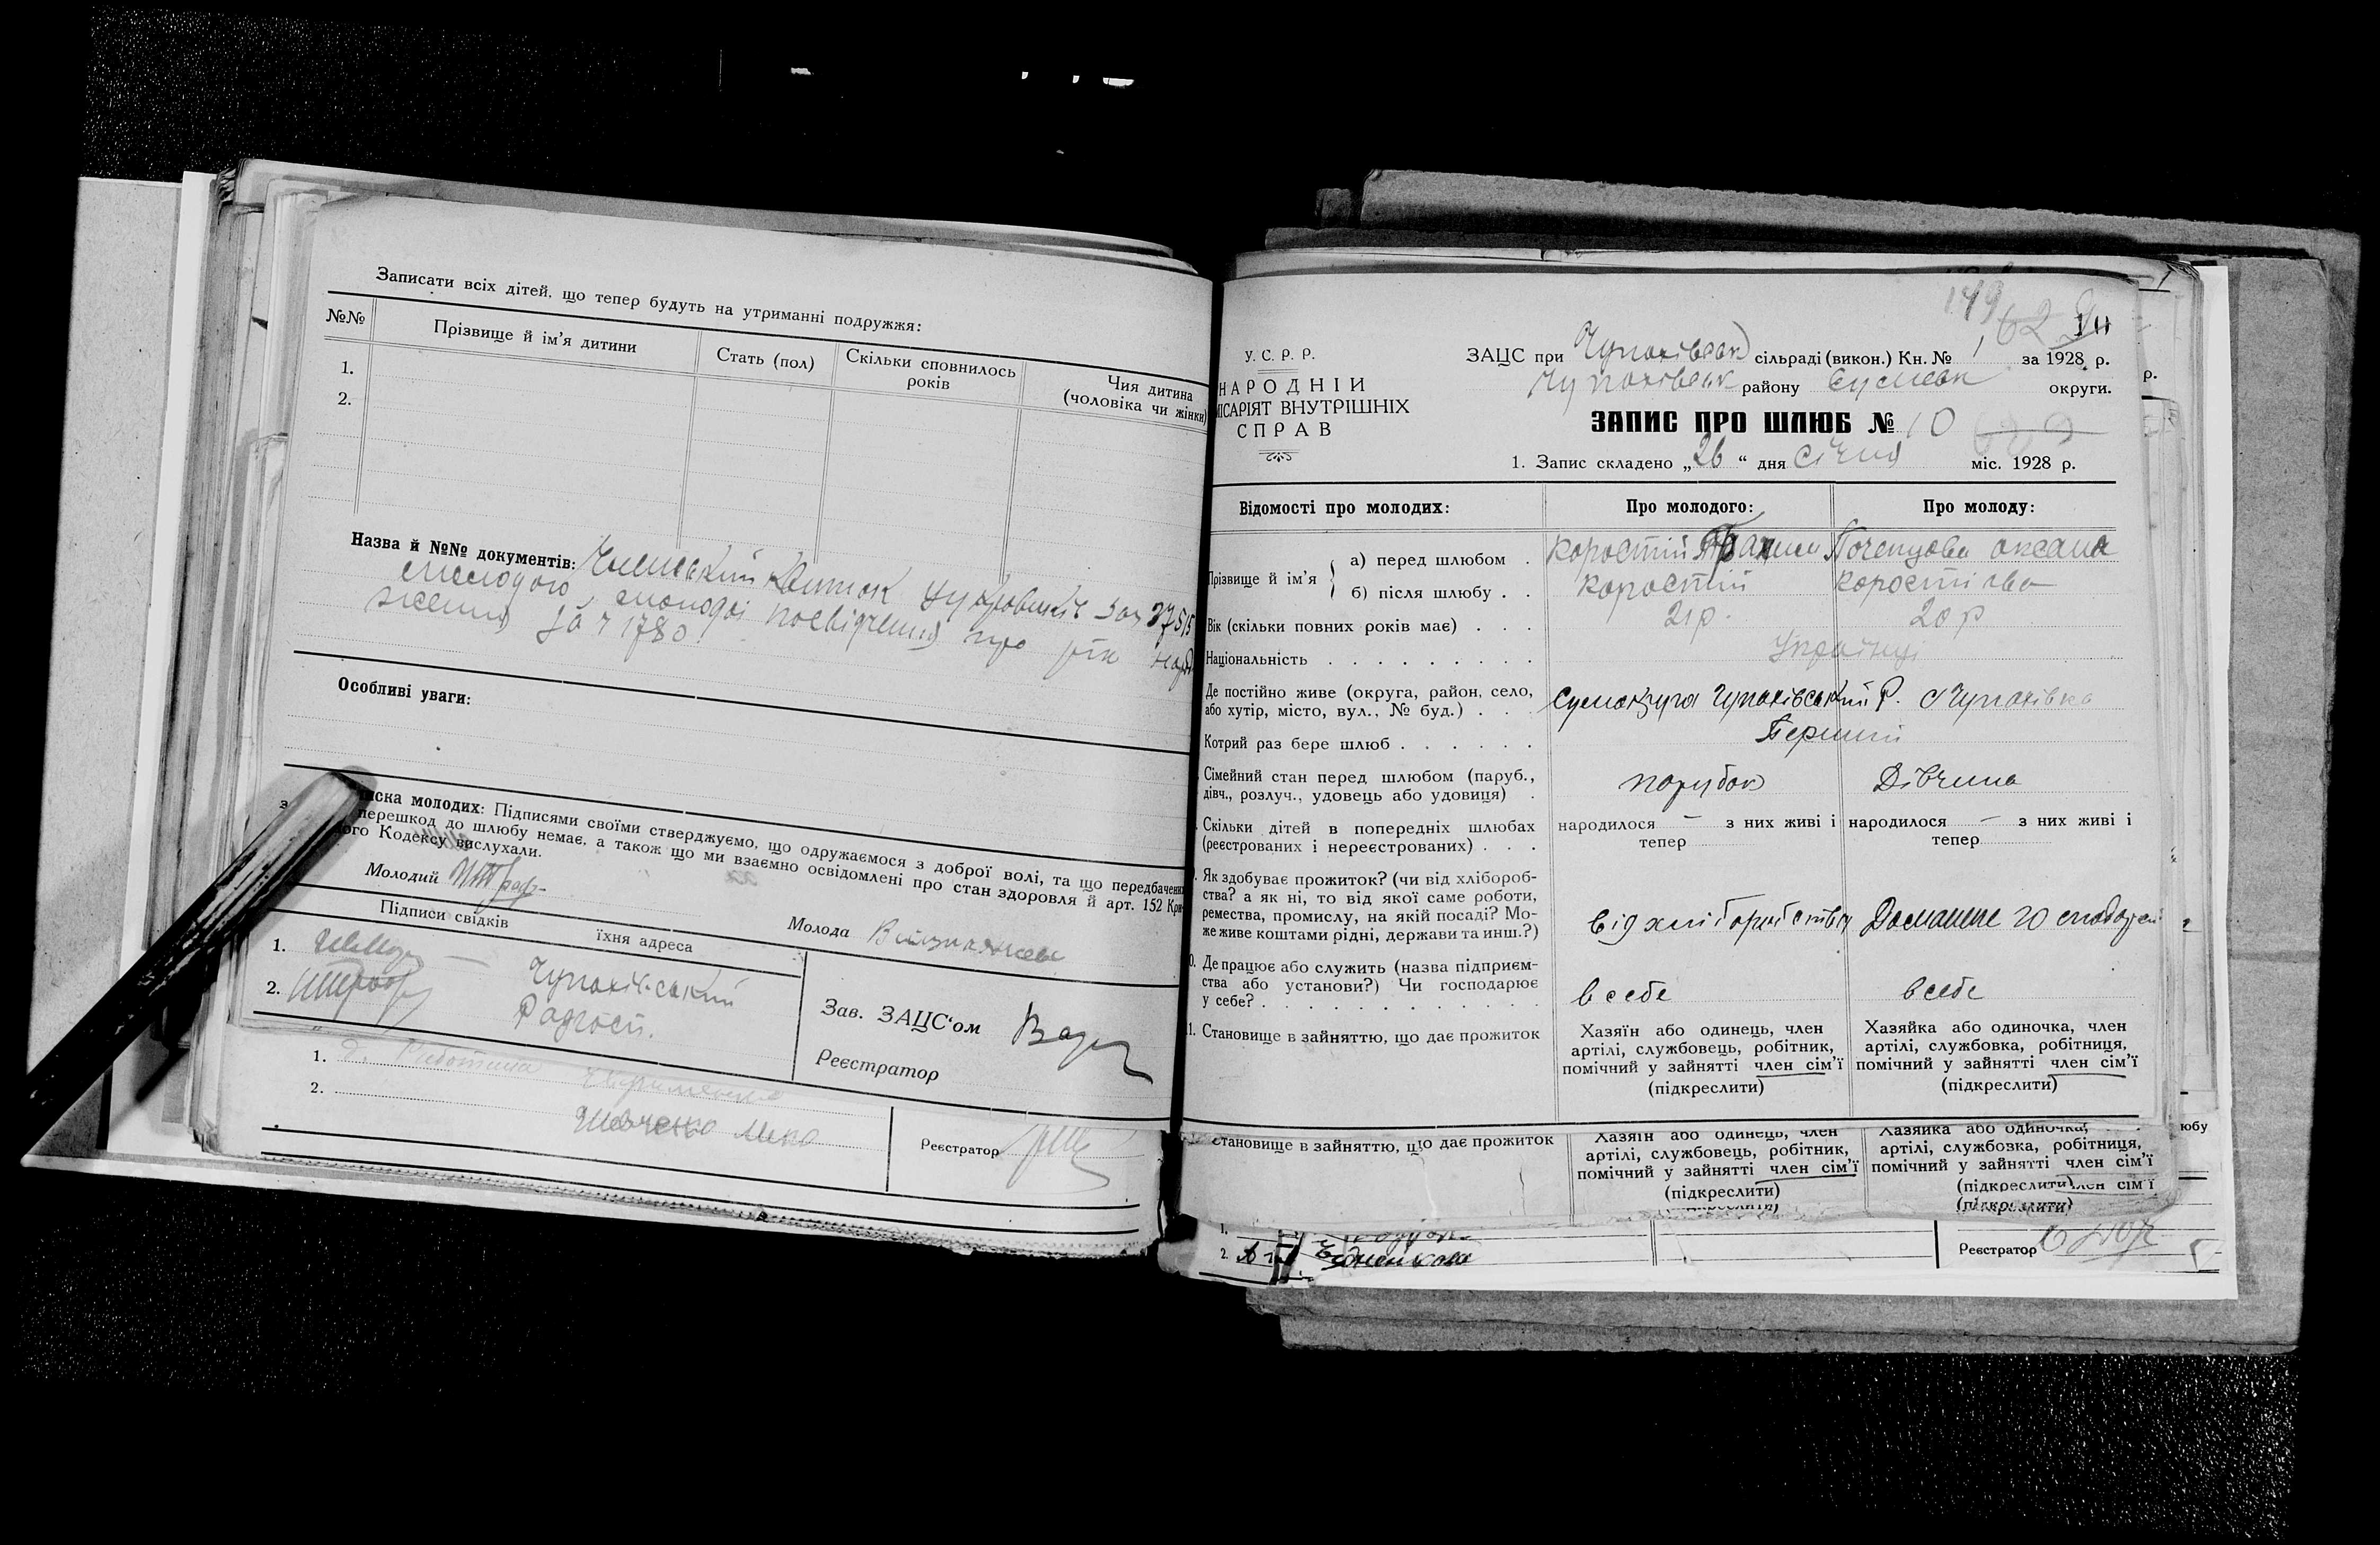 Записати всіх дітей, що тепер будуть на утриманні подружжя:
№№ Прізвище й ім'я дитини Стать (пол) Скільки сповнилось років Чия дитина (чоловіка чи жінки)
1.
2.
Назва й №№ документів: Членський квиток
молодого, молодої посвідчення про рік народ
ження за № 1780
Особливі уваги:
иска молодих: Підписями своїми стверджуємо, що одружаємося з доброї волі, та що передбачени
перешкод до шлюбу немає, а також що ми взаємно освідомлені про стан здоровля й арт. 152 Кри
ого Кодексу вислухали.
Молодий
Молода
Підписи свідків їхня адреса
1.
2. Чупахівський
Радгосп.
Зав. ЗАЦС'ом
Реєстратор
1.
2. Шевченко
Реєстратор
149
62
10
У. С. Р. Р.
НАРОДНІЙ
МІСАРІЯТ ВНУТРІШНІХ
СПРАВ
ЗАЦС при Чупахівськ сільраді (викон.) Кн. № 1 за 1928 р.
Чупахівськ району Сумськ округи.
ЗАПИС ПРО ШЛЮБ № 10
1. Запис складено „26“ дня січня міс. 1928 р.
Відомості про молодих: Про молодого: Про молоду:
Прізвище й ім'я а) перед шлюбом . Коростій Почепцова Оксана
б) після шлюбу . . Коростій Коростійова
Вік (скільки повних років має) . . . 21 р. 20 р
Національність . . . . . . . . . Українці
Де постійно живе (округа, район, село,
або хутір, місто, вул., № буд.) . . . Сумокруга Чупахівський Р. с Чупахівка
Котрий раз бере шлюб . . . . . . Перший
Сімейний стан перед шлюбом (паруб.,
дівч., розлуч., удовець або удовиця) . парубок Дівчина
Скільки дітей в попередніх шлюбах
(реєстрованих і нереєстрованих) . . .
народилося — з них живі і
тепер
народилося — з них живі і
тепер
Як здобуває прожиток? (чи від хлібороб-
ства? а як ні, то від якої саме роботи,
ремества, промислу, на якій посаді? Мо-
же живе коштами рідні, держави та инш.?)
від хліборобства Домашнє господар
0. Де працює або служить (назва підприєм-
ства або установи?) Чи господарює
у себе? . . . . . . . . . . в себе в себе
11. Становище в зайняттю, що дає прожиток
Хазяїн або одинець, член
артілі, службовець, робітник,
помічний у зайнятті член сім'ї
(підкреслити)
Хазяйка або одиночка, член
артілі, службовка, робітниця,
помічний у зайнятті член сім'ї
(підкреслити)
Становище в зайняттю, що дає прожиток
Хазяїн або одинець, член
артілі, службовець, робітник,
помічний у зайнятті член сім'ї
(підкреслити)
Хазяйка або одиночка,
артілі, службовка, робітниця,
помічний у зайнятті член сім'ї
(підкреслити) член сім'ї
(підкреслити)
1.
2.
Реєстратор
р.
юбу